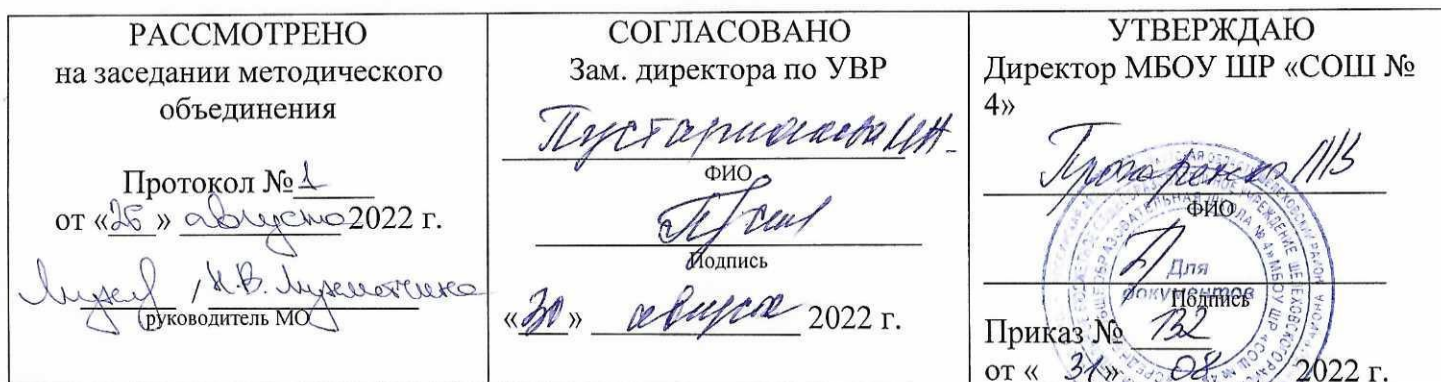 РАССМОТРЕНО
на заседании методического
объединения
Протокол № 1
от «26» августа 2022 г.
руководитель МО
СОГЛАСОВАНО
Зам. директора по УВР
ФИО
Подпись
«30» августа 2022 г.
УТВЕРЖДАЮ
Директор МБОУ ШР «СОШ №
4»
ФИО
Для
документов
Подпись
Приказ № 132
от « 31 » 08 2022 г.